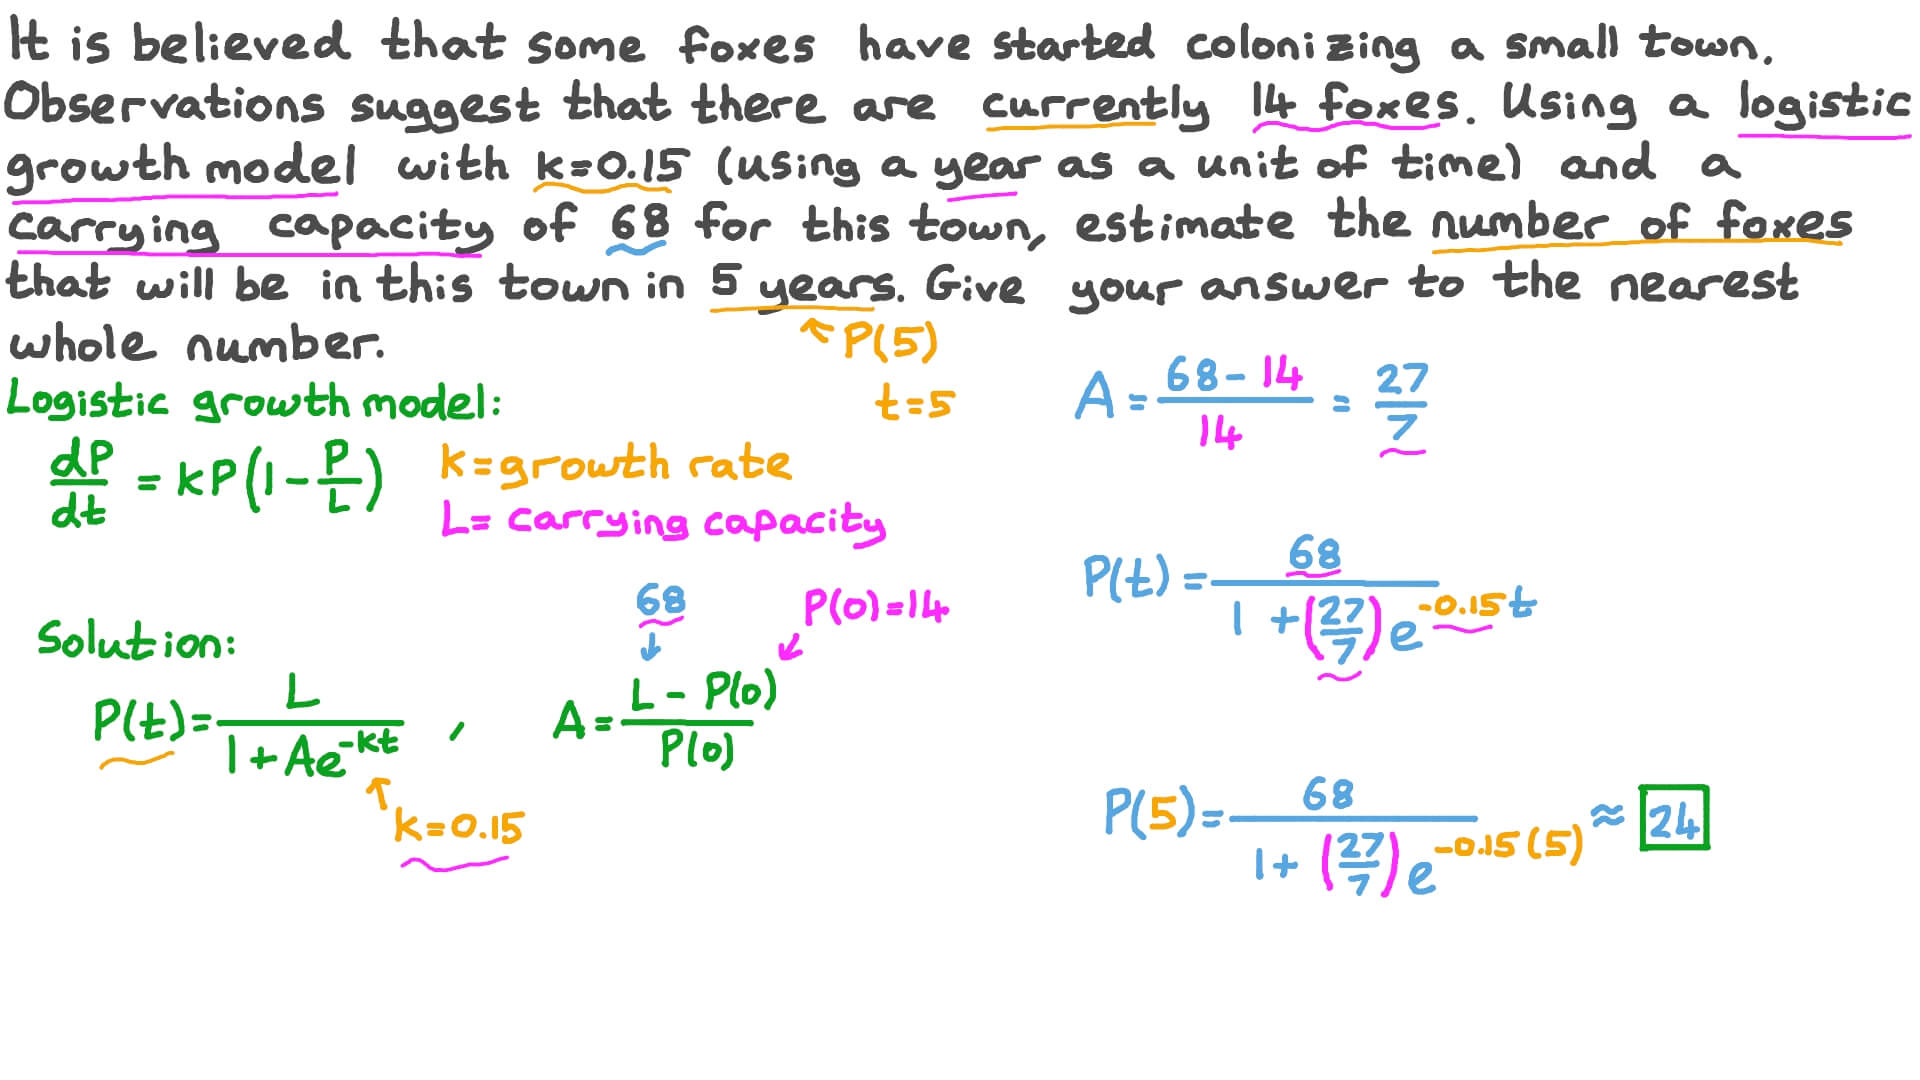 It is believed that some foxes have started colonizing a small town.
Observations suggest that there are currently 14 foxes. Using a logistic
growth model with k=0.15 (using a year as a unit of time) and a
carrying capacity of 68 for this town, estimate the number of foxes
that will be in this town in 5 years. Give your answer to the nearest
whole number.
P(5)
t=5
Logistic growth model:
dP/dt = kP(1-P/L)
k=growth rate
L= carrying capacity
Solution:
P(t)=L/(1+Ae^-kt) ,
k=0.15
68
P(0)=14
A=(L-P(0))/P(0)
A=(68-14)/14=27/7
P(t)=68/(1+(27/7)e^-0.15t)
P(5)=68/(1+(27/7)e^-0.15(5))≈24